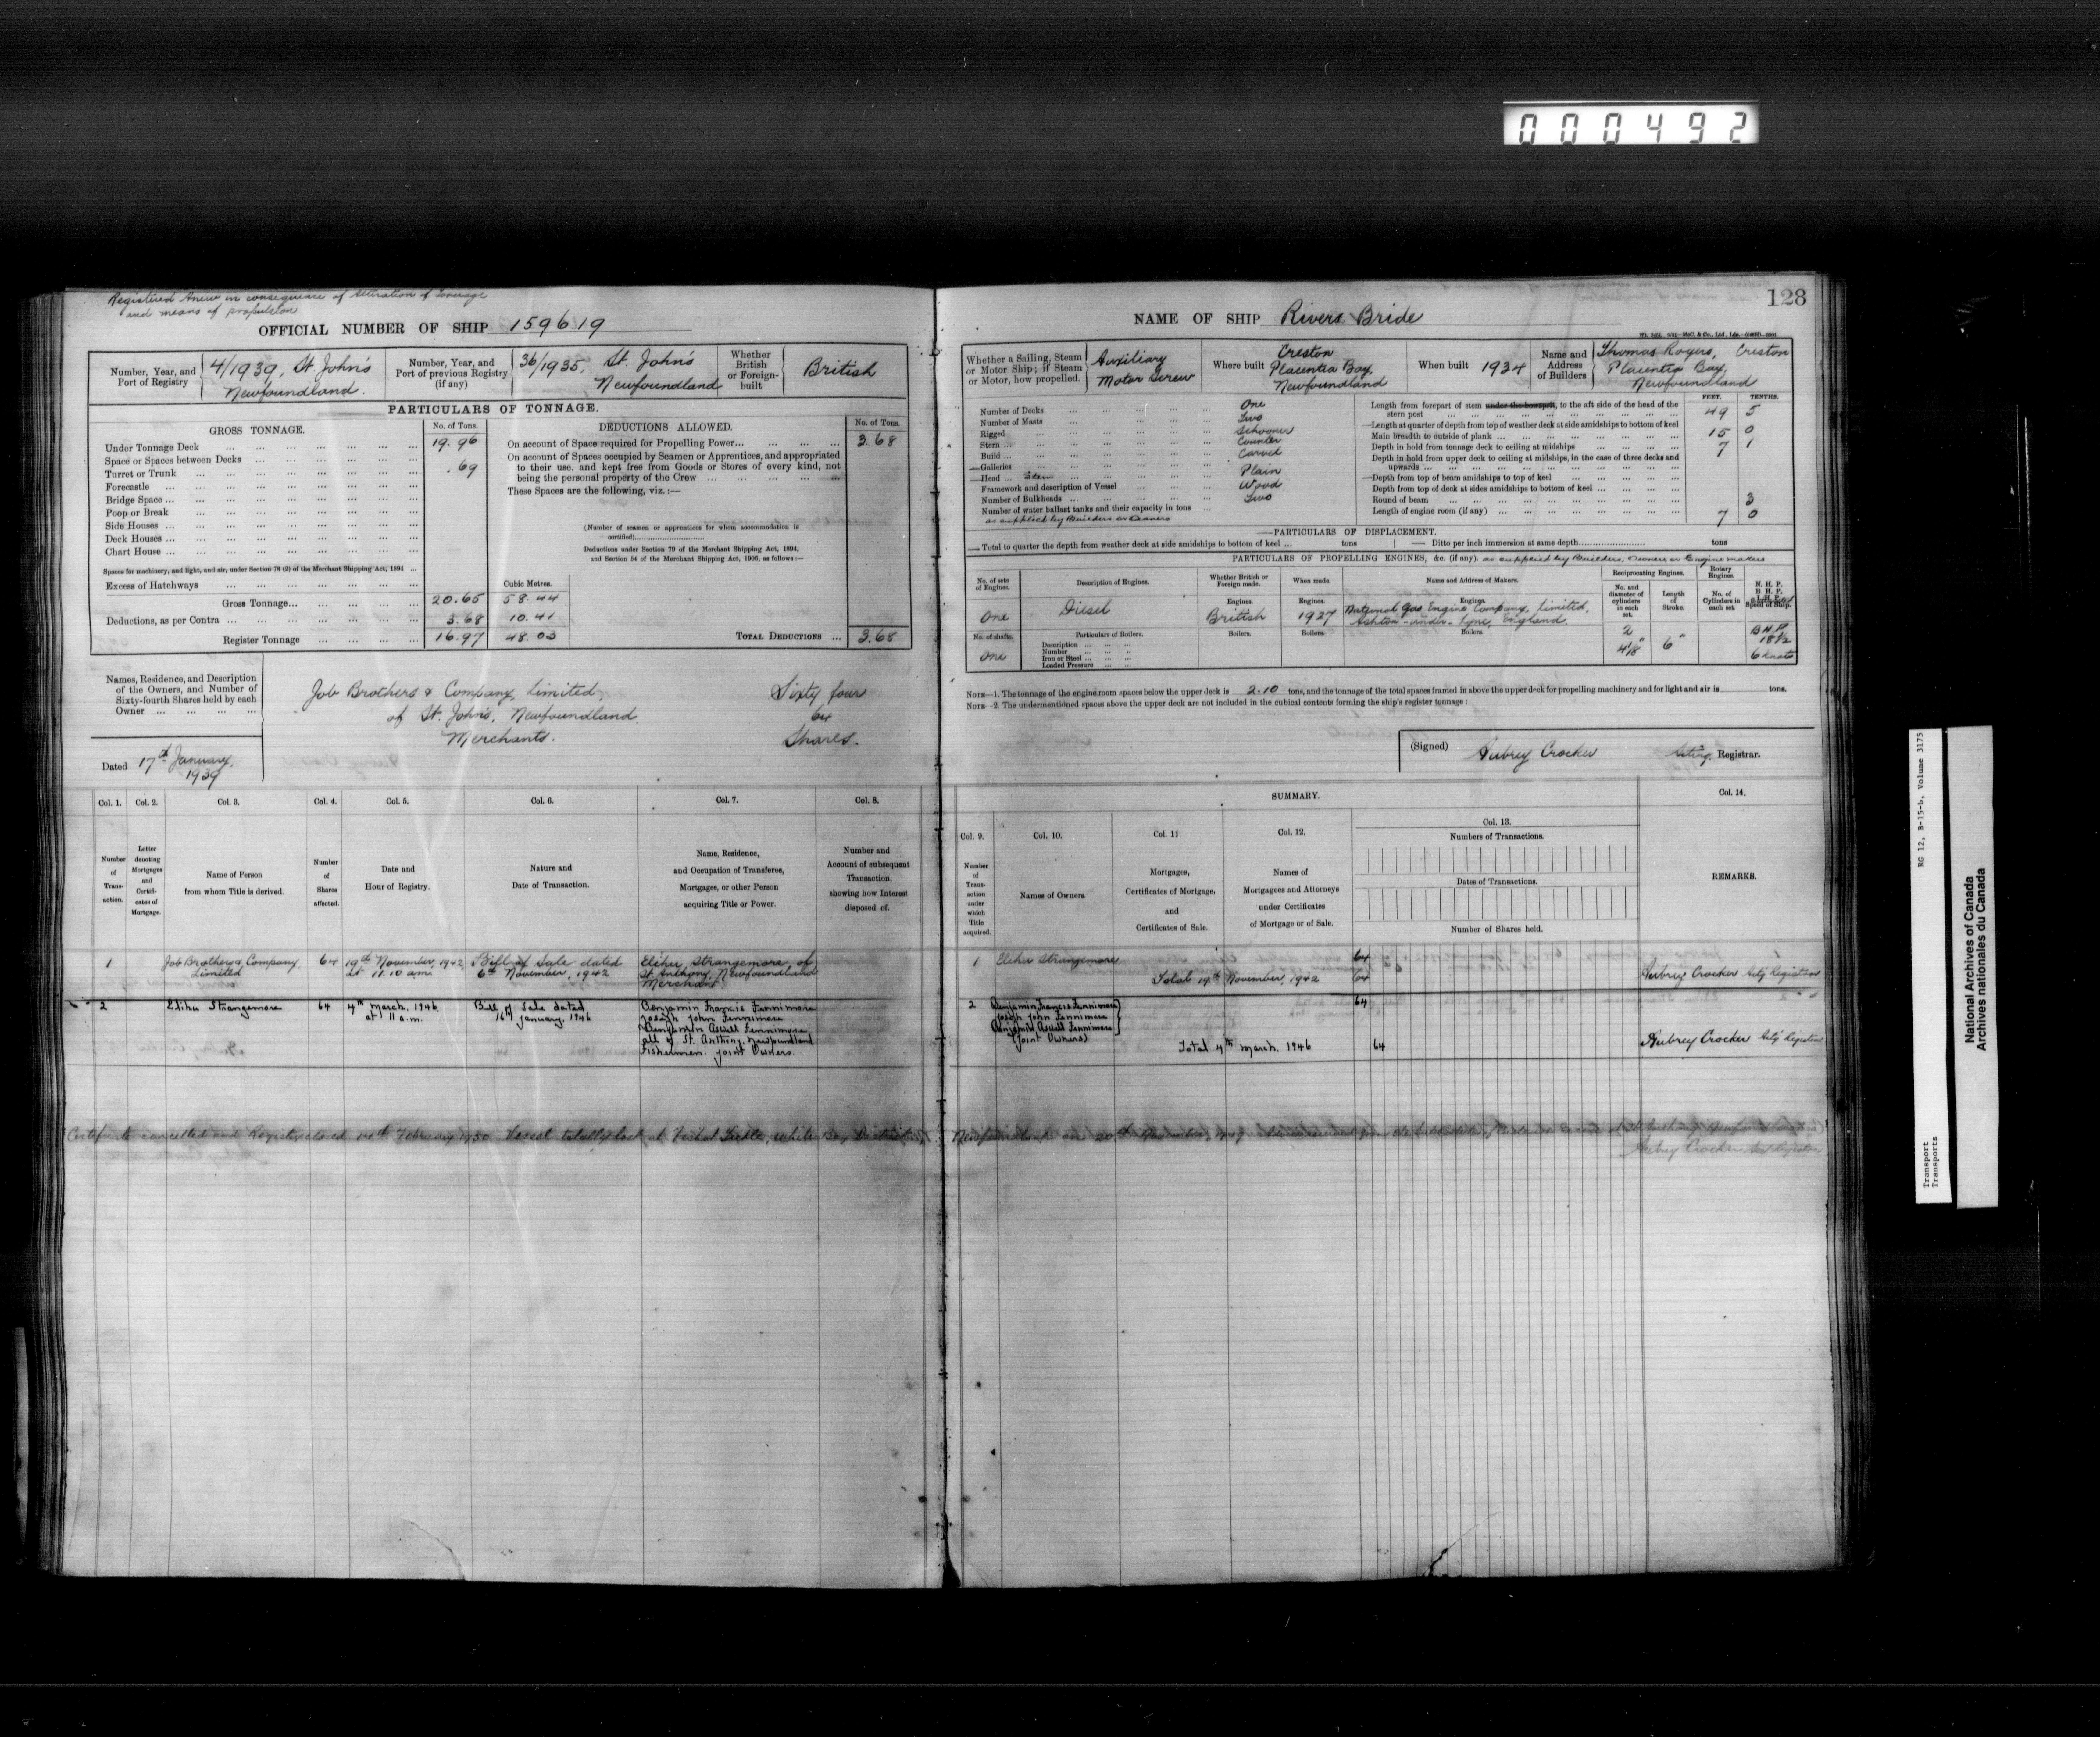 000492
Registered Anew in consequence of alteration of Tonnage
and means of propulsion
OFFICIAL NUMBER OF SHIP 159619
Number, Year, and Port of Registry
4/1939, St. John's
Newfoundland.
Number, Year, and Port of previous Registry (if any)
36/1935, St. John's
Newfoundland
Whether British or Foreign-built
British
PARTICULARS OF TONNAGE.
GROSS TONNAGE.
No. of Tons.
Under Tonnage Deck ... 19.96
Space or Spaces between Decks ...
Turret or Trunk ... .69
Forecastle ...
Bridge Space ...
Poop or Break ...
Side Houses ...
Deck Houses ...
Chart House ...
Spaces for machinery, and light, and air, under Section 78 (2) of the Merchant Shipping Act, 1894 ...
Excess of Hatchways ...
Cubic Metres.
Gross Tonnage... 20.65 58.44
Deductions, as per Contra ... 3.68 10.41
Register Tonnage ... 16.97 48.03
DEDUCTIONS ALLOWED.
No. of Tons.
On account of Space required for Propelling Power... 3.68
On account of Spaces occupied by Seamen or Apprentices, and appropriated
to their use, and kept free from Goods or Stores of every kind, not
being the personal property of the Crew ...
These Spaces are the following, viz.:—
(Number of seamen or apprentices for whom accommodation is
certified)
Deductions under Section 79 of the Merchant Shipping Act, 1894,
and Section 54 of the Merchant Shipping Act, 1906, as follows:—
TOTAL DEDUCTIONS ... 3.68
Names, Residence, and Description
of the Owners, and Number of
Sixty-fourth Shares held by each
Owner ...
Job Brothers & Company, Limited, Sixty four
of St. John's, Newfoundland 64
Merchants. Shares.
Dated 17th January,
1939
Col. 1. Col. 2. Col. 3. Col. 4. Col. 5. Col. 6. Col. 7. Col. 8.
Number of Trans-action.
Letter denoting Mortgages and Certifi-cates of Mortgage.
Name of Person
from whom Title is derived.
Number of Shares affected.
Date and
Hour of Registry.
Nature and
Date of Transaction.
Name, Residence,
and Occupation of Transferee,
Mortgagee, or other Person
acquiring Title or Power.
Number and
Account of subsequent
Transaction,
showing how Interest
disposed of.
1 Job Brothers & Company, Limited 64 19th November, 1942 at 11.10 a.m. Bill of Sale dated 6th November, 1942 Elihu Strangemore, of St. Anthony, Newfoundland Merchant.
2 Elihu Strangemore 64 4th March, 1946 at 11 a.m. Bill of Sale dated 16th January, 1946
Benjamin Francis Fennimore
Joseph John Fennimore
Benjamin Aswell Fennimore
all of St. Anthony, Newfoundland
Fishermen. Joint Owners.
Certificate cancelled and Registry closed 14th February 1950 Vessel totally lost at Tickle, White Bay
128
NAME OF SHIP Rivers Bride
Whether a Sailing, Steam
or Motor Ship; if Steam
or Motor, how propelled.
Auxiliary
Motor Screw
Where built
Creston
Placentia Bay,
Newfoundland
When built 1934
Name and Address of Builders
Thomas Rogers, Creston
Placentia Bay,
Newfoundland
Number of Decks ... One
Number of Masts ... Two
Rigged ... Schooner
Stern ... Counter
Build ... Carvel
Galleries ...
Head ... Stem ... Plain
Framework and description of Vessel Wood
Number of Bulkheads ... Two
Number of water ballast tanks and their capacity in tons ...
as supplied by Builders or Owners
FEET. TENTHS.
Length from forepart of stem under the bowsprit, to the aft side of the head of the
stern post ... 49 5
Length at quarter of depth from top of weather deck at side amidships to bottom of keel
Main breadth to outside of plank ... 15 0
Depth in hold from tonnage deck to ceiling at midships ... 7 1
Depth in hold from upper deck to ceiling at midships, in the case of three decks and
upwards ...
Depth from top of beam amidships to top of keel ...
Depth from top of deck at sides amidships to bottom of keel ...
Round of beam ... 3
Length of engine room (if any) ... 7 0
PARTICULARS OF DISPLACEMENT.
Total to quarter the depth from weather deck at side amidships to bottom of keel ... tons
Ditto per inch immersion at same depth tons
PARTICULARS OF PROPELLING ENGINES, &c. (if any). as supplied by Builders, Owners or Engine makers
No. of sets of Engines.
Description of Engines.
Whether British or Foreign made.
When made.
Name and Address of Makers.
Reciprocating Engines.
No. and diameter of cylinders in each set.
Length of Stroke.
Rotary Engines
No. of Cylinders in each set.
N. H. P.
B. H. P.
I. H. P.
Speed of Ship.
Engines. Engines. Engines.
One Diesel British 1927
National Gas Engine Company, Limited,
Ashton-under-Lyne, England.
No. of shafts.
One
Particulars of Boilers.
Description ...
Number ...
Iron or Steel ...
Loaded Pressure ...
Boilers. Boilers. Boilers.
2
6"
B.H.P.
18½
6 knots
NOTE—1. The tonnage of the engine room spaces below the upper deck is 2.10 tons, and the tonnage of the total spaces framed in above the upper deck for propelling machinery and for light and air is tons.
NOTE—2. The undermentioned spaces above the upper deck are not included in the cubical contents forming the ship's register tonnage:
(Signed) Aubrey Crocker Acting Registrar.
SUMMARY.
Col. 9. Col. 10. Col. 11. Col. 12. Col. 13. Col. 14.
Number of Trans-action under which Title acquired.
Names of Owners.
Mortgages,
Certificates of Mortgage,
and
Certificates of Sale.
Names of
Mortgagees and Attorneys
under Certificates
of Mortgage or of Sale.
Numbers of Transactions.
Dates of Transactions.
Number of Shares held.
REMARKS.
1 Elihu Strangemore 64
Total 19th November, 1942 64 Aubrey Crocker Actg Registrar
2 Benjamin Francis Fennimore 64
Joseph John Fennimore
Benjamin Aswell Fennimore
(Joint Owners)
Total 4th March, 1946 64 Aubrey Crocker Actg Registrar
Newfoundland on 20th November, 1949
Aubrey Crocker Registrar
RG 12, B-15-b, Volume 3175
Transport
Transports
National Archives of Canada
Archives nationales du Canada